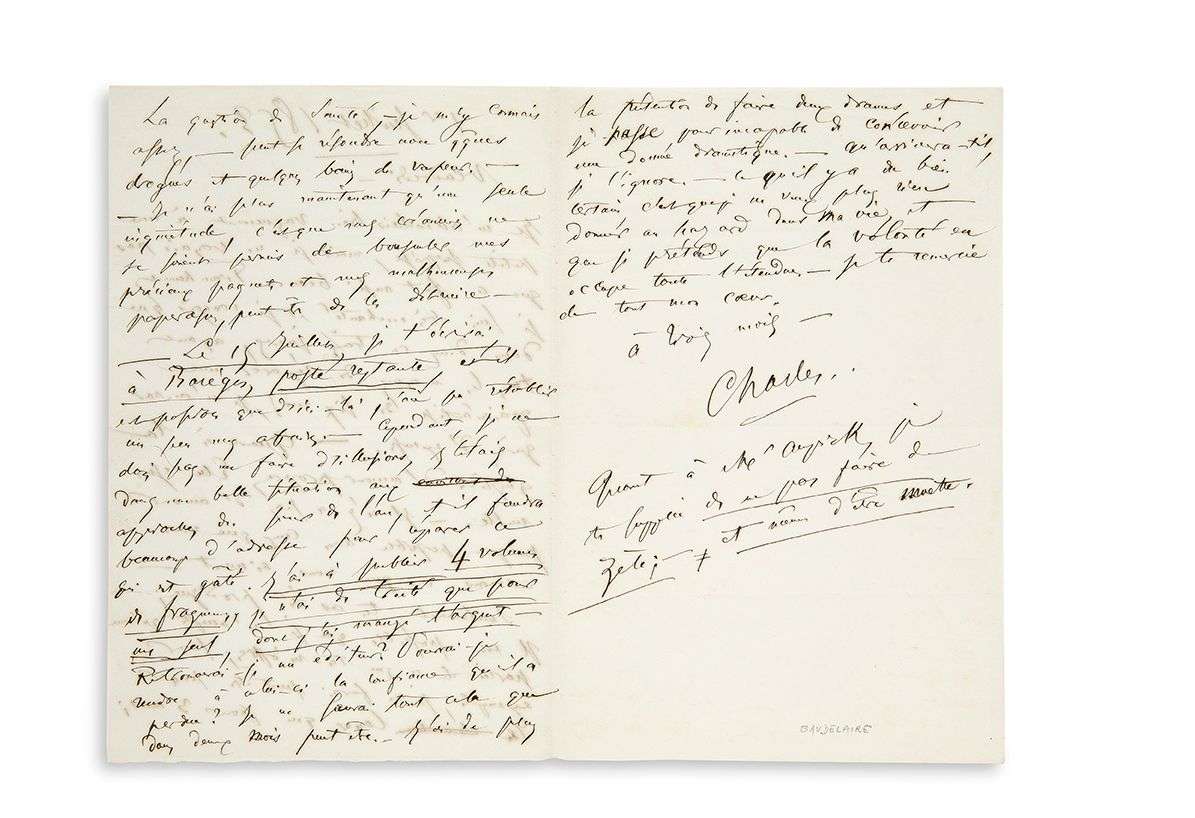 La question de santé, — je m'y connais
assez, — peut se résoudre avec qques
drogues et quelques bains de vapeur. —
— Je n'ai plus maintenant qu'une seule
inquiétude, c'est que mes créanciers ne
se soient permis de bousculer mes
précieux paquets et mes malheureuses
paperasses, peut-être de les détruire —
Le 15 Juillet, je t'écrirai
à Barèges, poste restante, et il
est possible que d'ici-là j'aie pu rétablir
un peu mes affaires. — Cependant, je ne
dois pas me faire d'illusions, J'étais
dans une belle situation aux environs du
approches du jour de l'an, et il faudra
beaucoup d'adresse pour réparer ce
qui est gâté. J'ai à publier 4 volumes
de fragments, je n'ai de traité que pour
un seul, dont j'ai mangé l'argent
Retrouverai-je un éditeur? Pourrai-je
rendre à celui-ci la confiance qu'il a
perdue? Je ne saurai tout cela que
dans deux mois peut-être. — J'ai de plus
la prétention de faire deux drames, et
je passe pour incapable de concevoir
une donnée dramatique. — qu'arrivera-t-il,
je l'ignore. — Ce qu'il y a de bien
certain c'est que je ne veux plus rien
donner au hazard dans ma vie, et
que je prétends que la volonté en
occupe toute l'étendue. — Je te remercie
de tout mon cœur.
à trois mois —
Charles.
Quant à Mr Aupick, je
te supplie de ne pas faire de
zèle; — et même d'être muette.
BAUDELAIRE